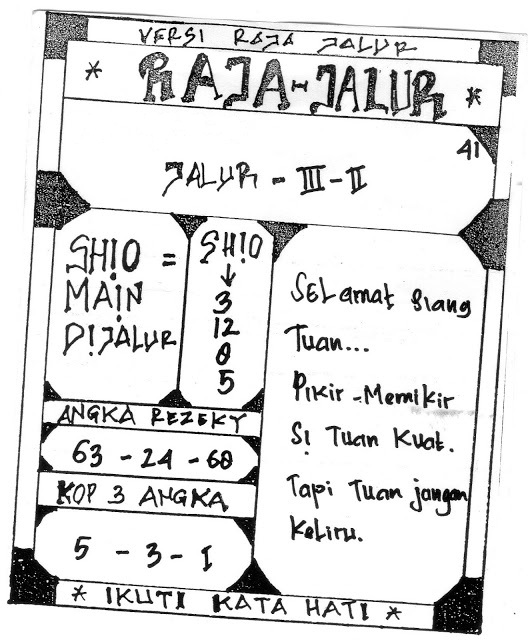 VERSI RAJA JALUR
* RAJA-JALUR *
41
JALUR - III - II
SHIO =
MAIN
DIJALUR
SHIO
↓
3
12
0
5
SELamat siang
Tuan...
Pikir - Memikir
Si Tuan Kuat.
Tapi Tuan jangan
Keliru.
ANGKA REZEKY
63 - 24 - 60
KOP 3 ANGKA
5 - 3 - I
* IKUTI KATA HATI *